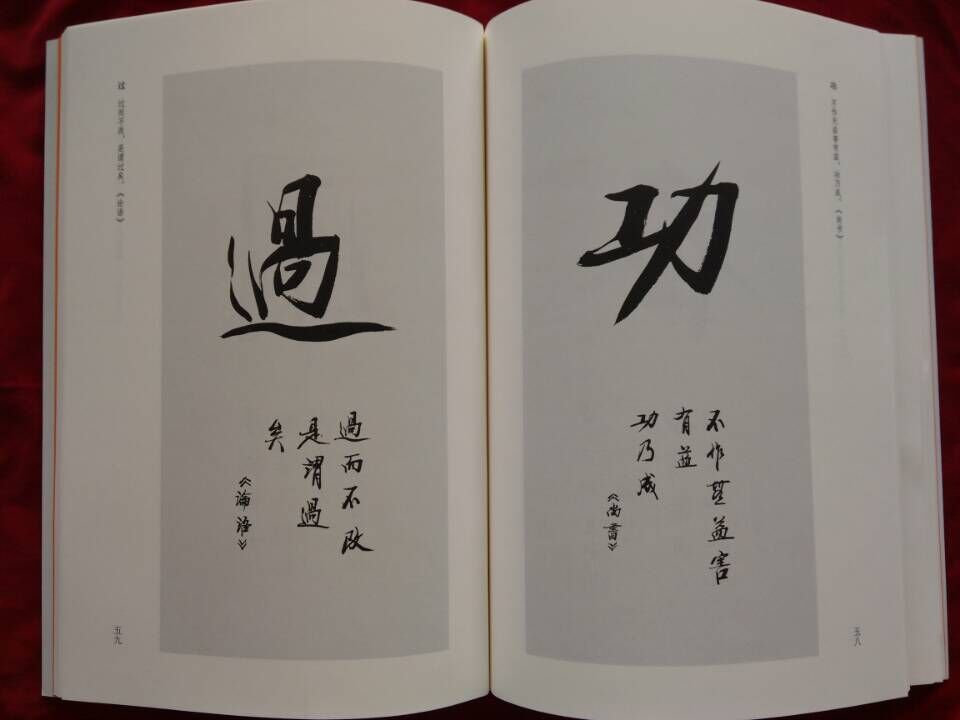 功 不作无益害有益，功乃成。《尚书》
功
不作無益害
有益
功乃成
《尚書》
五八
过 过而不改，是谓过矣。《论语》
過
過而不改
是謂過
矣
《論語》
五九